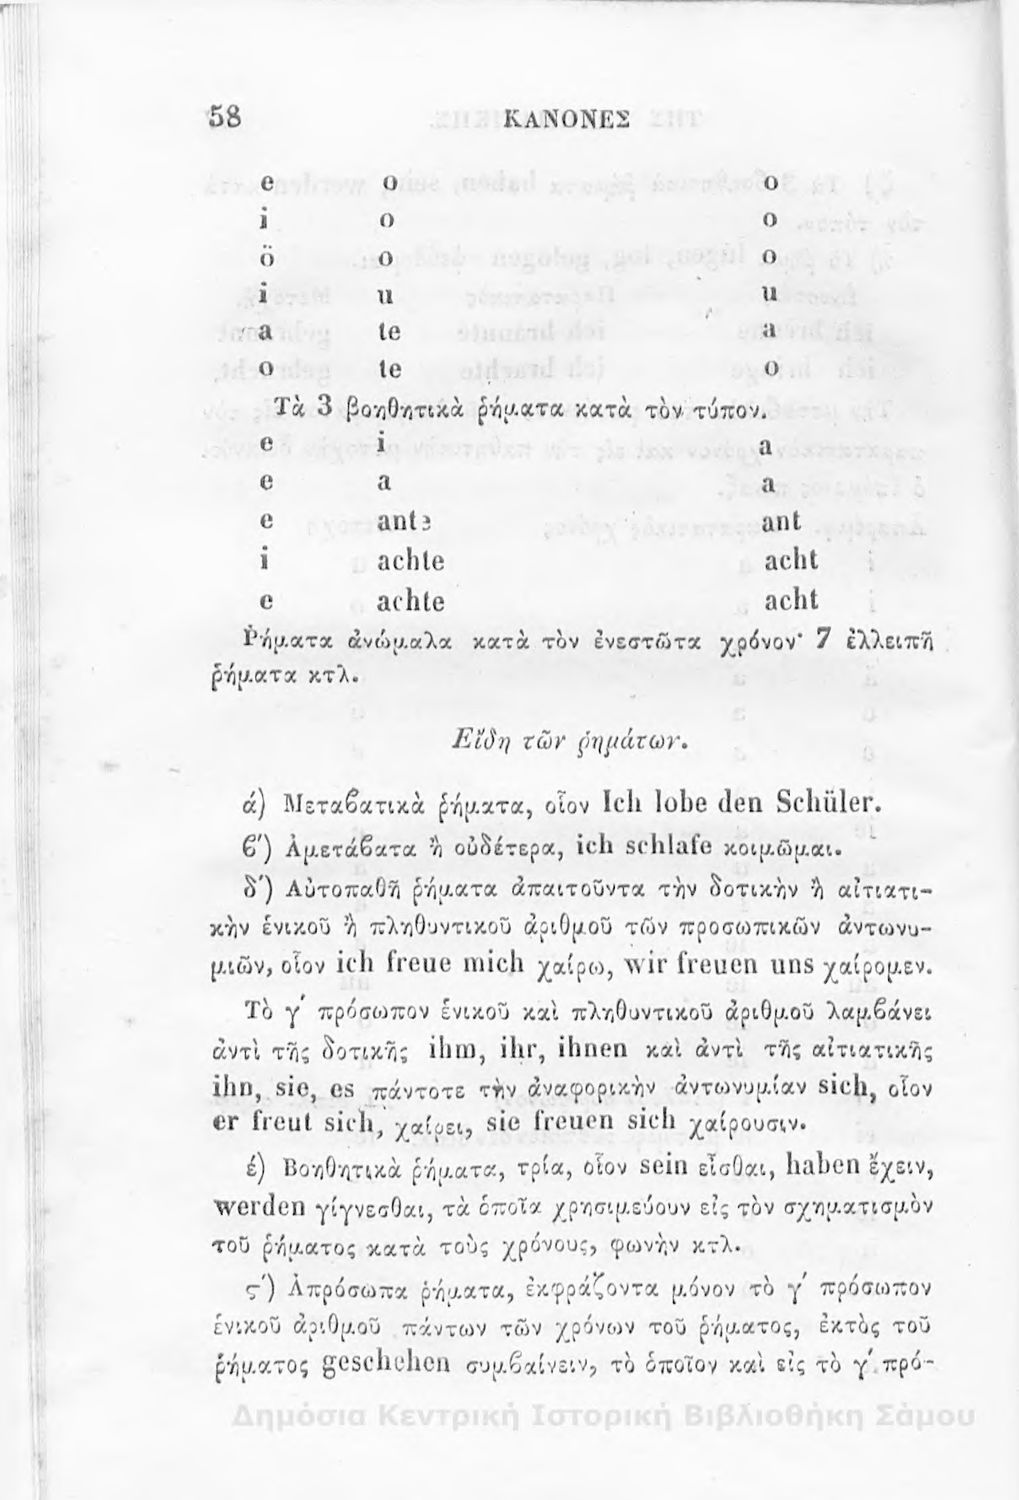 58 ΚΑΝΟΝΕΣ
e o o
i o o
ö o o
i u u
a te a
o te o
Τὰ 3 βοηθητικὰ ῥήματα κατὰ τὸν τύπον.
e i a
e a a
e ante ant
i achte acht
e achte acht
Ῥήματα ἀνώμαλα κατὰ τὸν ἐνεστῶτα χρόνον· 7 ἐλλειπῆ
ῥήματα κτλ.
Εἴδη τῶν ῥημάτων.
ά) Μεταϐατικὰ ῥήματα, οἷον Ich lobe den Schüler.
ϐ′) Ἀμετάϐατα ἢ οὐδέτερα, ich schlafe κοιμῶμαι.
δ′) Αὐτοπαθῆ ῥήματα ἀπαιτοῦντα τὴν δοτικὴν ἢ αἰτιατι-
κὴν ἑνικοῦ ἢ πληθυντικοῦ ἀριθμοῦ τῶν προσωπικῶν ἀντωνυ-
μιῶν, οἷον ich freue mich χαίρω, wir freuen uns χαίρομεν.
Τὸ γ′ πρόσωπον ἑνικοῦ καὶ πληθυντικοῦ ἀριθμοῦ λαμϐάνει
ἀντὶ τῆς δοτικῆς ihm, ihr, ihnen καὶ ἀντὶ τῆς αἰτιατικῆς
ihn, sie, es πάντοτε τὴν ἀναφορικὴν ἀντωνυμίαν sich, οἷον
er freut sich, χαίρει, sie freuen sich χαίρουσιν.
έ) Βοηθητικὰ ῥήματα, τρία, οἷον sein εἶσθαι, haben ἔχειν,
werden γίγνεσθαι, τὰ ὁποῖα χρησιμεύουν εἰς τὸν σχηματισμὸν
τοῦ ῥήματος κατὰ τοὺς χρόνους, φωνὴν κτλ.
ς′) Ἀπρόσωπα ῥήματα, ἐκφράζοντα μόνον τὸ γ′ πρόσωπον
ἑνικοῦ ἀριθμοῦ πάντων τῶν χρόνων τοῦ ῥήματος, ἐκτὸς τοῦ
ῥήματος geschehen συμϐαίνειν, τὸ ὁποῖον καὶ εἰς τὸ γ′ πρό-
Δημόσια Κεντρική Ιστορική Βιβλιοθήκη Σάμου